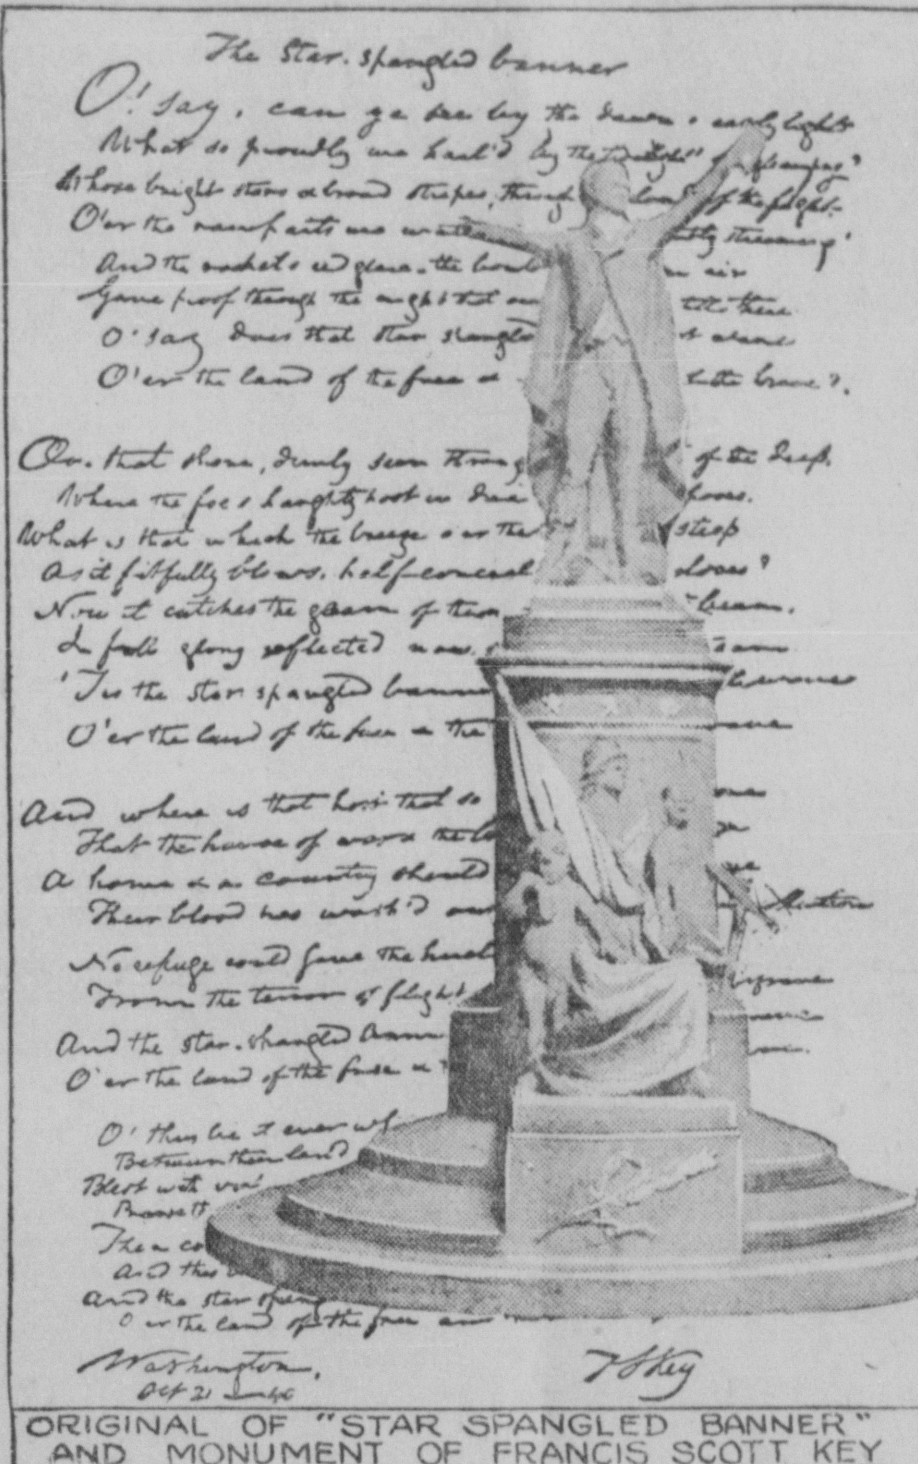 The Star-spangled banner
O! say, can ye see by the dawn's early light
What so proudly we hail'd by the
Whose bright stars & broad stripes, through of the fight
O'er the ramparts we streaming
And the rockets red glare, the bomb air
Gave proof through the night that there
O! say does that star spangled
O'er the land of the free & brave?
On that shore, dimly seen throug of the deep,
Where the foe's haughty host in
What is that which the breeze o'er the steep
As it fitfully blows, half conceal closes?
Now it catches the gleam of the beam,
In full glory reflected now
'Tis the star spangled banne
O'er the land of the free & the
And where is that host that so
That the havoc of war & the
A home & a country should
Their blood has wash'd
No refuge could save the
From the terror of flight
And the star-spangled
O'er the land of the free &
O! thus be it ever
Between their land
Blest with
Then
And this
And the star spang
O'er the land of the free
Washington,
Oct 21
F S Key
ORIGINAL OF "STAR SPANGLED BANNER"
AND MONUMENT OF FRANCIS SCOTT KEY